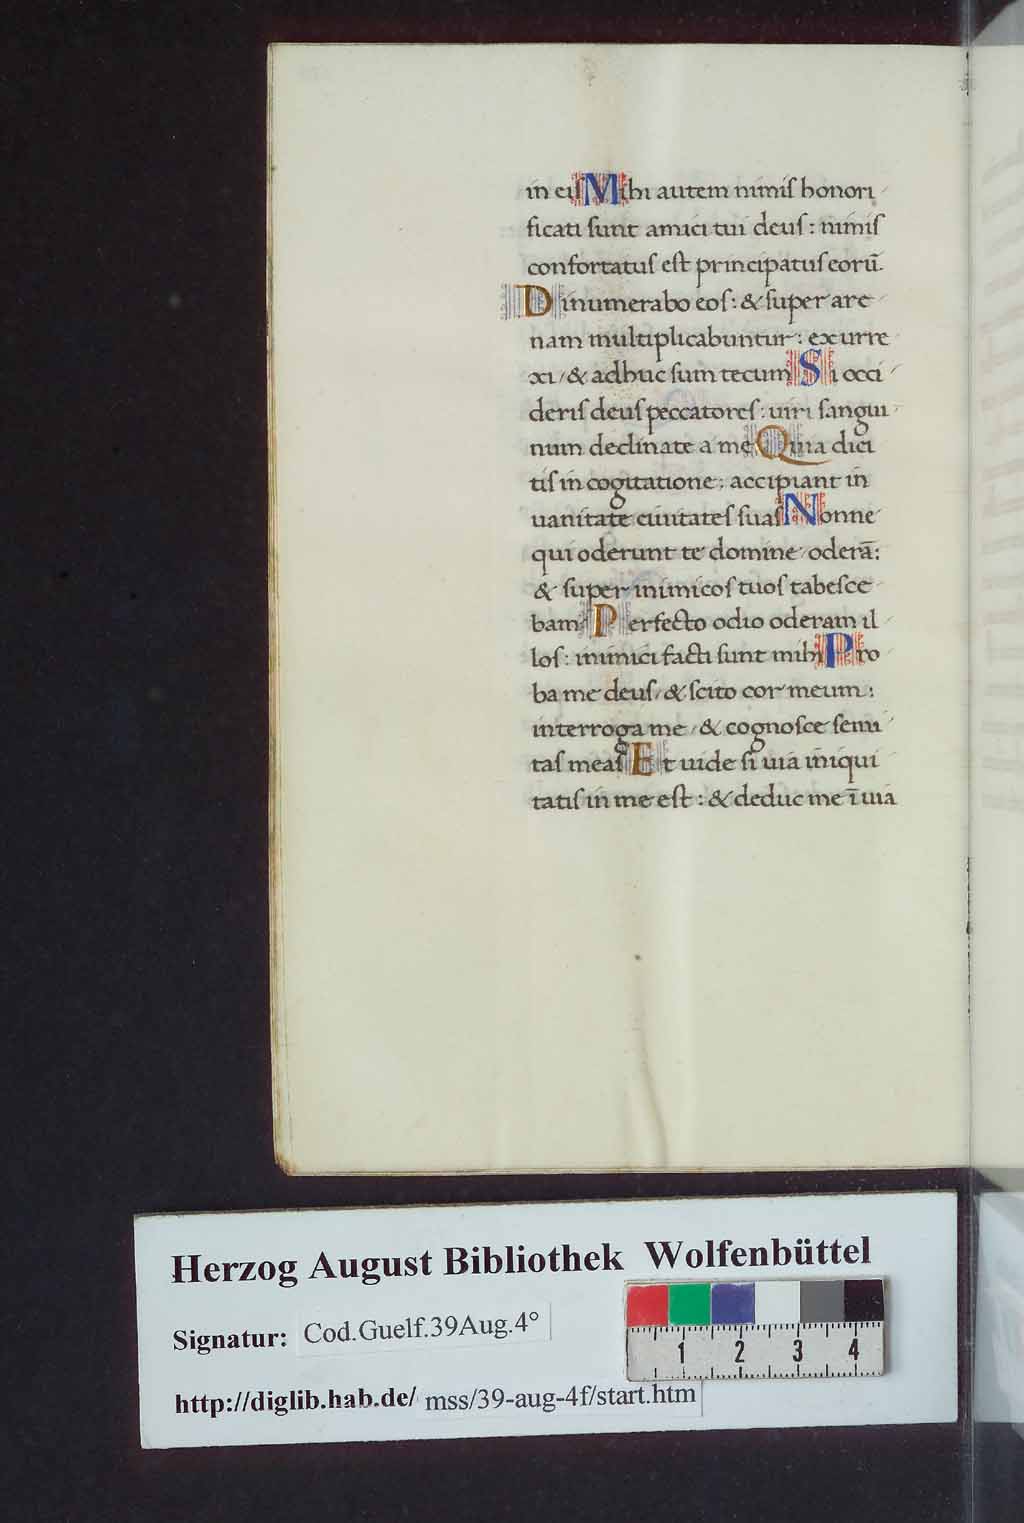 in eiſ Mihi autem nimiſ honori
ficati ſunt amici tui deuſ : nimiſ
confortatuſ eſt principatuſ eorū.
Dinumerabo eoſ : & ſuper are
nam multiplicabuntur : exurre
xi / & adhuc ſum tecum Si occi
deriſ deuſ peccatoreſ : uiri ſangui
num declinate a me Quia dici
tiſ in cogitatione : accipiant in
uanitate ciuitateſ ſuaſ Nonne
qui oderunt te domine oderā :
& ſuper inimicoſ tuoſ tabeſce
bam Perfecto odio oderam il
loſ : inimici facti ſunt mihi Pro
ba me deuſ / & ſcito cor meum :
interroga me / & cognoſce ſemi
taſ meaſ Et uide ſi uia iniqui
tatiſ in me eſt : & deduc me ī uia
Herzog August Bibliothek Wolfenbüttel
Signatur: Cod.Guelf.39Aug.4°
http://diglib.hab.de/ mss/39-aug-4f/start.htm
1 2 3 4